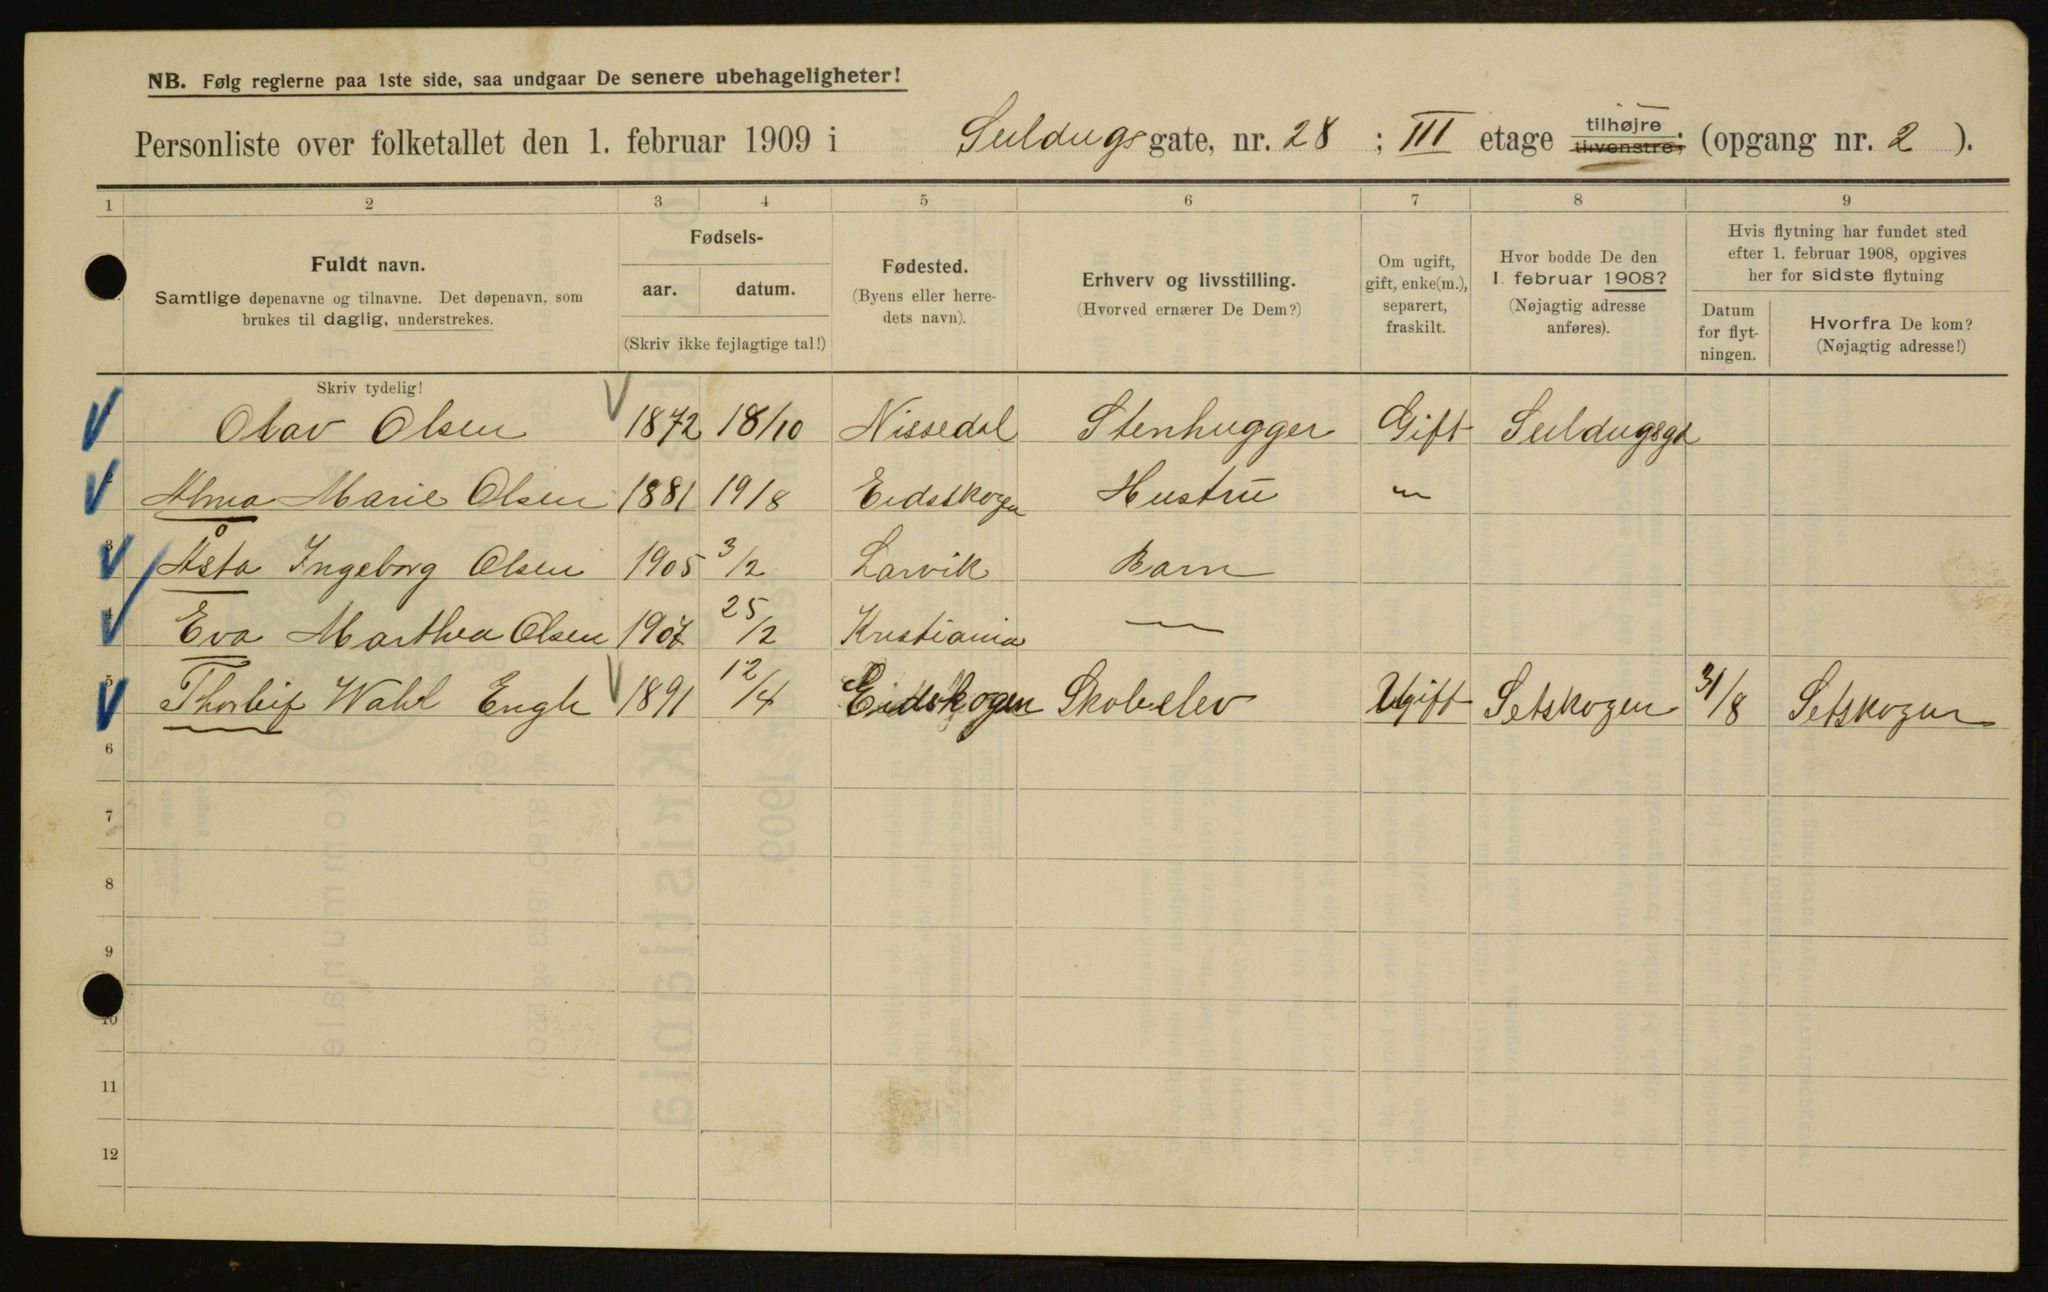 NB. Følg reglerne paa 1ste side, saa undgaar De senere ubehageligheter!
Personliste over folketallet den 1. februar 1909 i Suldugsgate, nr. 28 ; III etage tilhøjre tilvenstre; (opgang nr. 2 ).
1 2 3 4 5 6 7 8 9
Fuldt navn.
Samtlige døpenavne og tilnavne. Det døpenavn, som
brukes til daglig, understrekes.
Skriv tydelig!
Fødsels-
aar. datum.
(Skriv ikke fejlagtige tal!)
Fødested.
(Byens eller herre-
dets navn).
Erhverv og livsstilling.
(Hvorved ernærer De Dem?)
Om ugift,
gift, enke(m.),
separert,
fraskilt.
Hvor bodde De den
1. februar 1908?
(Nøjagtig adresse
anføres).
Hvis flytning har fundet sted
efter 1. februar 1908, opgives
her for sidste flytning
Datum
for flyt-
ningen.
Hvorfra De kom?
(Nøjagtig adresse!)
Olav Olsen 1872 18/10 Nissedal Stenhugger Gift Suldugsgd
Alma Marie Olsen 1881 19/8 Eidsskogen Hustru "
3 Åsta Ingeborg Olsen 1905 3/2 Larvik Barn
4 Eva Marthea Olsen 1907 25/2 Kristiania —
5 Thorleif Wahl Engh 1891 12/4 Eidskogen Skoleelev Ugift Setskogen 31/8 Setskogen
6
7
8
9
10
11
12